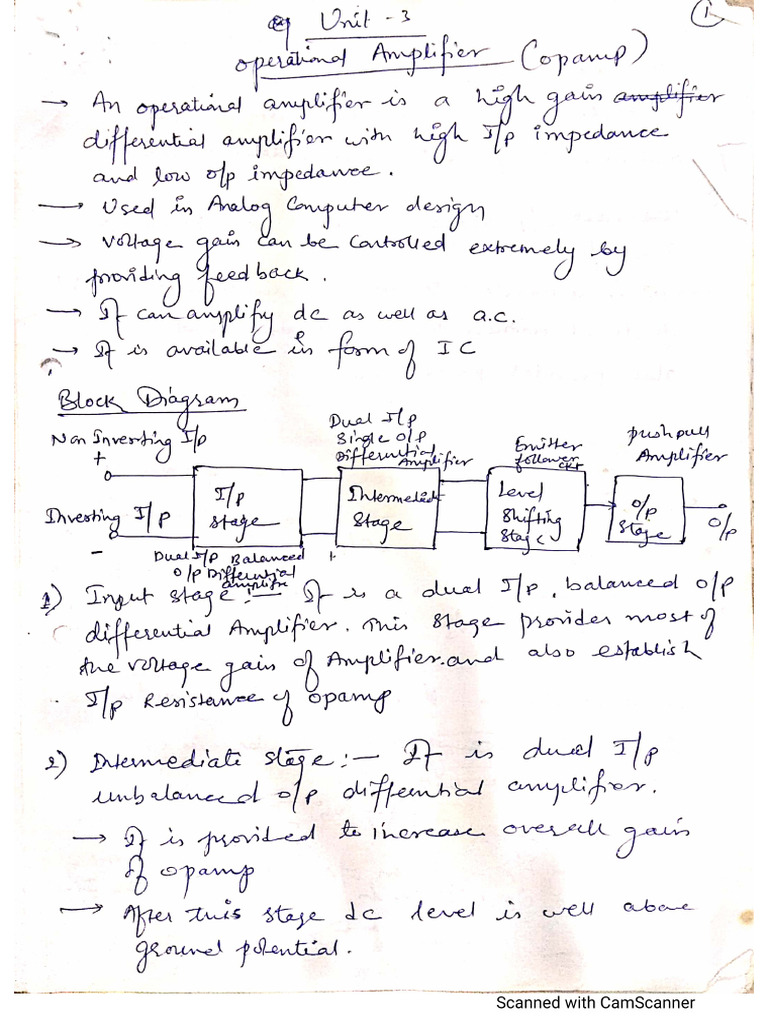 Unit - 3
1
Operational Amplifier (opamp)
→ An operational amplifier is a high gain amplifier
differential amplifier with high I/p impedance
and low o/p impedance.
→ Used in Analog Computer design
→ Voltage gain can be controlled extremely by
providing feedback.
→ It can amplify dc as well as a.c.
→ It is available in form of IC
Block Diagram
Non Inverting I/p
+
Inverting I/p
-
I/p
stage
Dual I/p Balanced
O/p Differential
amplifier
Dual I/p
Single O/p
Differential
Amplifier
Intermediate
Stage
+
Emitter
follower
ckt
Level
Shifting
Stage
Pushpull
Amplifier
O/p
Stage
O/p
1) Input stage :- It is a dual I/p, balanced O/p
differential Amplifier. This stage provides most of
the voltage gain of Amplifier. and also establish
I/p Resistance of opamp
2) Intermediate stage :- It is dual I/p
unbalanced o/p differential amplifier.
→ It is provided to increase overall gain
of opamp
→ After this stage dc level is well above
ground potential.
Scanned with CamScanner